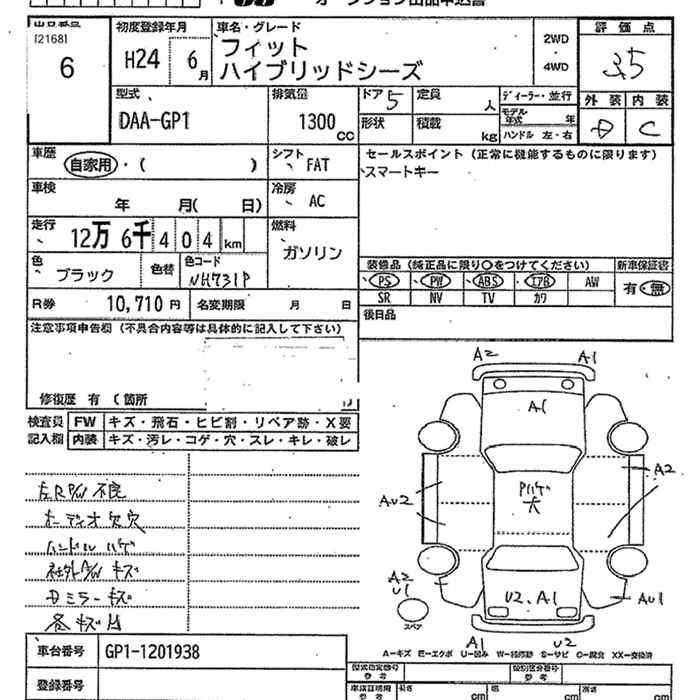 [2168]
6
初度登録年月
H24 6月
車名・グレード
フィット
ハイブリッドシーズ
2WD
4WD
評価点
3.5
外装 内装
D C
型式
DAA-GP1
排気量
1300
CC
ドア 5
定員
人
ディーラー・並行
モデル年式 年
形状
積載
kg
ハンドル 左・右
車歴
自家用・( )
シフト
FAT
セールスポイント(正常に機能するものに限ります)
スマートキー
車検
年 月( 日)
冷房
AC
走行
12万 6千 4 0 4 km
燃料
ガソリン
色
ブラック
色替
色コード
NH731P
装備品(純正品に限り○をつけてください)
新車保証書
PS PW ABS エアB AW
有・無
SR NV TV カワ
R券
10,710 円
名変期限 月 日
後日品
注意事項申告欄(不具合内容等は具体的に記入して下さい)
修復歴 有 (箇所
検査員
記入欄
FW キズ・飛石・ヒビ割・リペア跡・X要
内装 キズ・汚レ・コゲ・穴・スレ・キレ・破レ
左R P/W 不良
オーディオ欠穴
ハンドル ハゲ
社外A/W キズ
Dミラーキズ
各キズ凹
A2 A1
A1
A2
AU2
Pハゲ
大
A2
U1
U2、A1
AU1
スペア
A1 U2
A—キズ E—エクボ U—凹み W—補修跡 S—サビ C—腐食 XX—交換済
車台番号
GP1-1201938
登録番号
型式指定番号
参考
類別区分番号
車庫証明用
参考
長さ cm 幅 cm 高さ cm